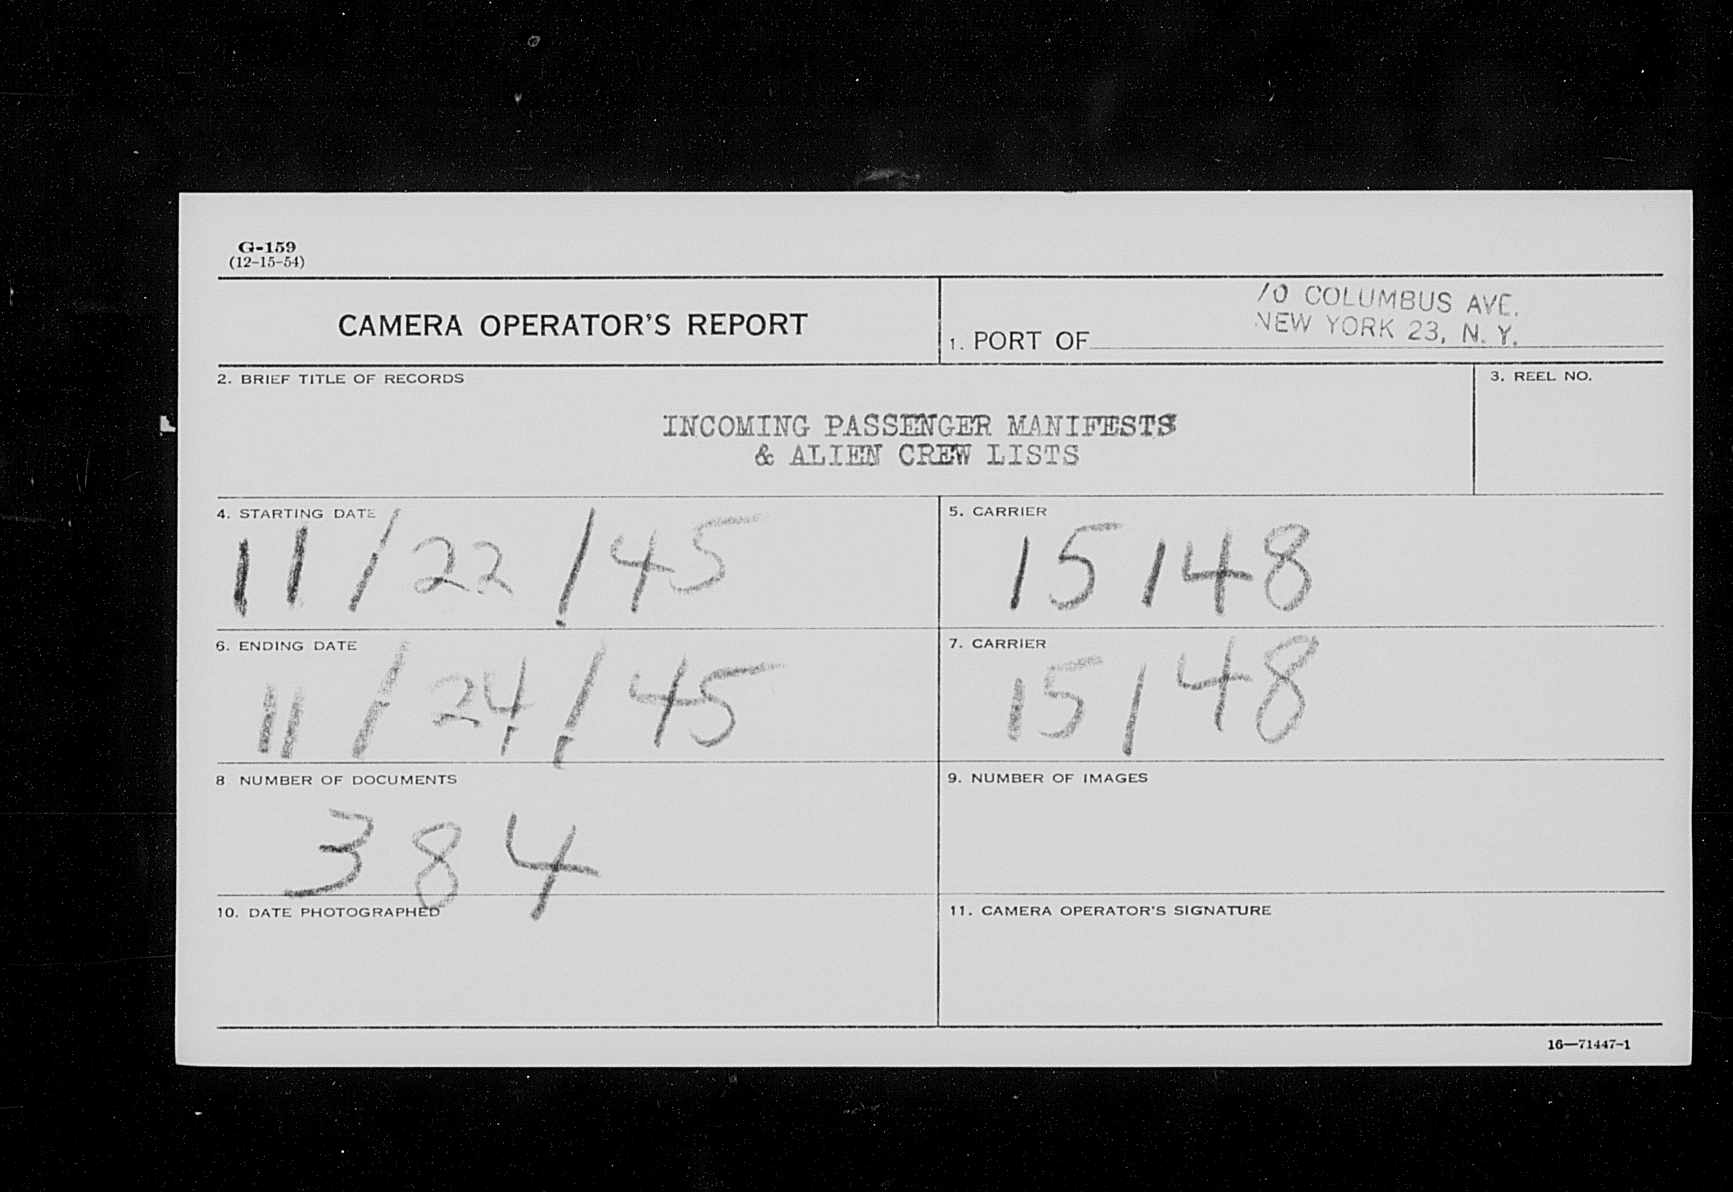 G-159
(12-15-54)
CAMERA OPERATOR'S REPORT
1. PORT OF
70 COLUMBUS AVE.
NEW YORK 23, N. Y.
2. BRIEF TITLE OF RECORDS
INCOMING PASSENGER MANIFESTS
& ALIEN CREW LISTS
3. REEL NO.
4. STARTING DATE
11/22/45
5. CARRIER
15148
6. ENDING DATE
11/24/45
7. CARRIER
15148
8 NUMBER OF DOCUMENTS
384
9. NUMBER OF IMAGES
10. DATE PHOTOGRAPHED
11. CAMERA OPERATOR'S SIGNATURE
16—71447-1